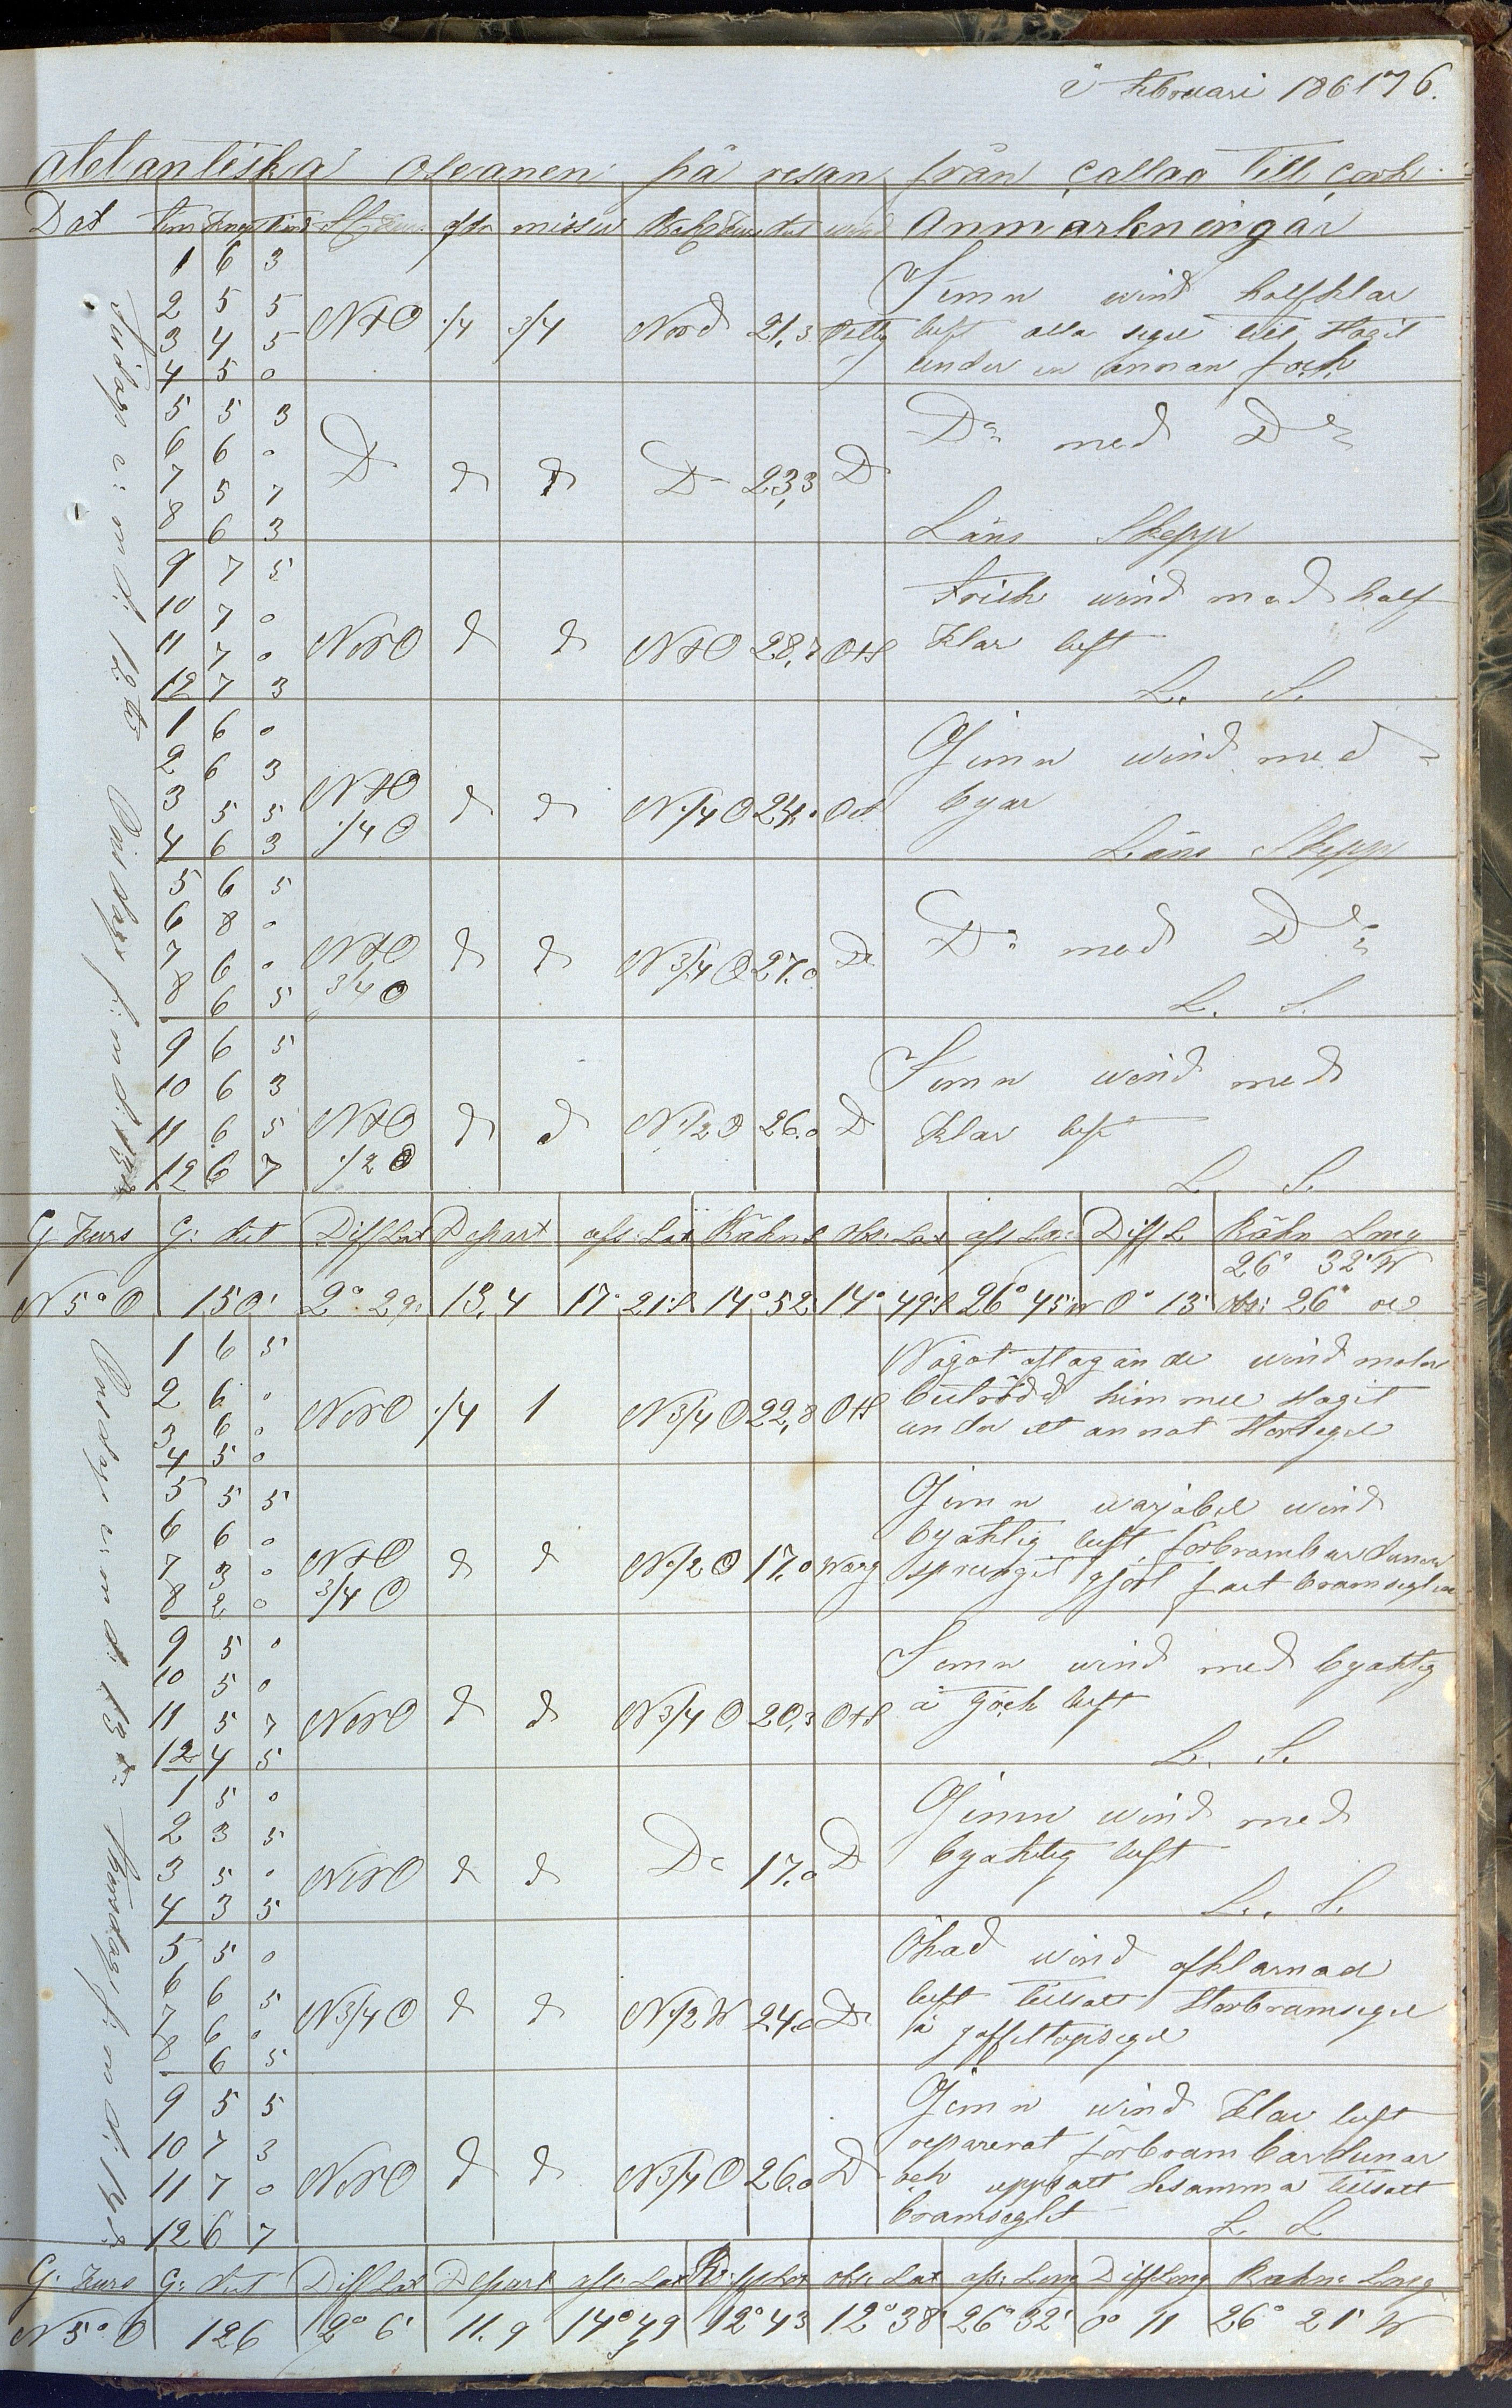 i Februari 1861 76.
atelantiska oseanen på resan från Callao till Cork
Dat Tim Knop Styr Kurs afdr missv Rätt Kurs dist wind Anmarkningar
Tisdags e: m d: 12te
1 6 3
2 5 5
3 4 5
4 5 0
NtO 1/4 3/4 Nord 21,3 Ostlig
Jemn wind halfklar
luft alla segel till Slagit
under en annan fock
5 5 3
6 6 0
7 5 7
8 6 3
D d d D 23,3 D
Do med Do
Läns Skepp
9 7 5
10 7 0
11 7 0
12 7 3
NNO d d NtO 28,7 OtS
Frisk wind med half
klar luft
L. S.
Onsdags f: m d: 13de
1 6 0
2 6 3
3 5 5
4 6 3
NtO 1/4 O d d N1/4O 24,0 Ost
Jemn wind med
byar
Läns Skepp
5 6 5
6 8 0
7 6 0
8 6 5
NtO 3/4 O d d N3/4O 27.0 Do
Do med Do
L. S.
9 6 5
10 6 3
11 6 5
12 6 7
NtO 1/2 O d d N1/2O 26.0 D
Jemn wind med
klar luft
L. S.
G. Kurs G: dist Diff Lat Depart afs: Lat Räkn L obs: Lat afs Lo: Diff L Räkn Long
26° 32' W
N 5° O 150' 2° 29' 13,4 17° 21'S 14° 52 14° 49'S 26° 45'W 0° 13' obs: 26°
Onsdags e: m d: 13de
1 6 5
2 6 0
3 6 0
4 5 0
NNO 1/4 1 N3/4O 22,8 OtS
Något aftagande wind moln
betröd himmel slagit
under ett annat Storsegel
5 5 5
6 6 0
7 3 0
8 2 0
NtO 3/4 O d d N1/2O 17.0 Warg
Jemn warjabel wind
byaktig luft, förbrambardunen
sprungit gjort fast bramseglen
9 5 0
10 5 0
11 5 7
12 4 5
NNO d d N3/4O 20,3 OtS
Jemn wind med byaktig
å tjock luft
L. S.
Thorsdags f: m d: 14de
1 5 0
2 3 5
3 5 0
4 3 5
NNO d d Do 17.0 D
Jemn wind med
byaktig luft
L. S.
5 5 0
6 6 5
7 6 0
8 6 5
N3/4O d d N1/2W 24.0 Do
Ökad wind afklarnad
luft tillsatt Storbramsegel
å gaffeltopsegel
9 5 5
10 7 3
11 7 0
12 6 7
NNO d d N3/4O 26.0 D
Jemn wind klar luft
reparerat förbrambardunar
och uppsatt desamma tillsatt
bramseglet L. S.
G. Kurs G: dist Diff Lat Depart afs: Lat obs: Lat afs: Long Diff Long Räkn: Long
N 5° O 126 2° 6' 11.9 14° 49 12° 43 12° 38' 26° 32' 0° 11 26° 21' W